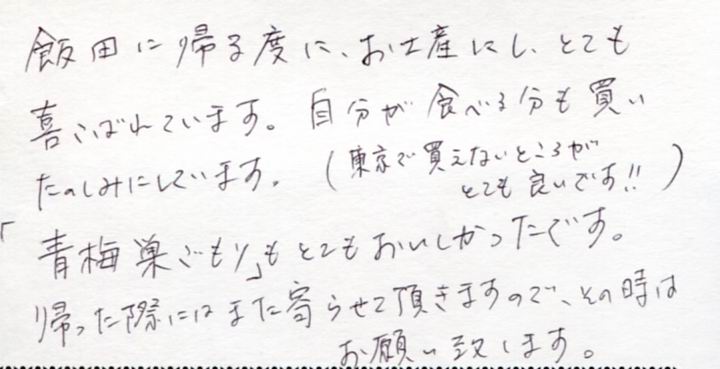 飯田に帰る度に、お土産にし、とても
喜こばれています。自分が食べる分も買い
たのしみにしています。(東京で買えないところが
とても良いです!!)
「青梅巣ごもり」もとてもおいしかったです。
帰った際にはまた寄らせて頂きますので、その時は
お願い致します。